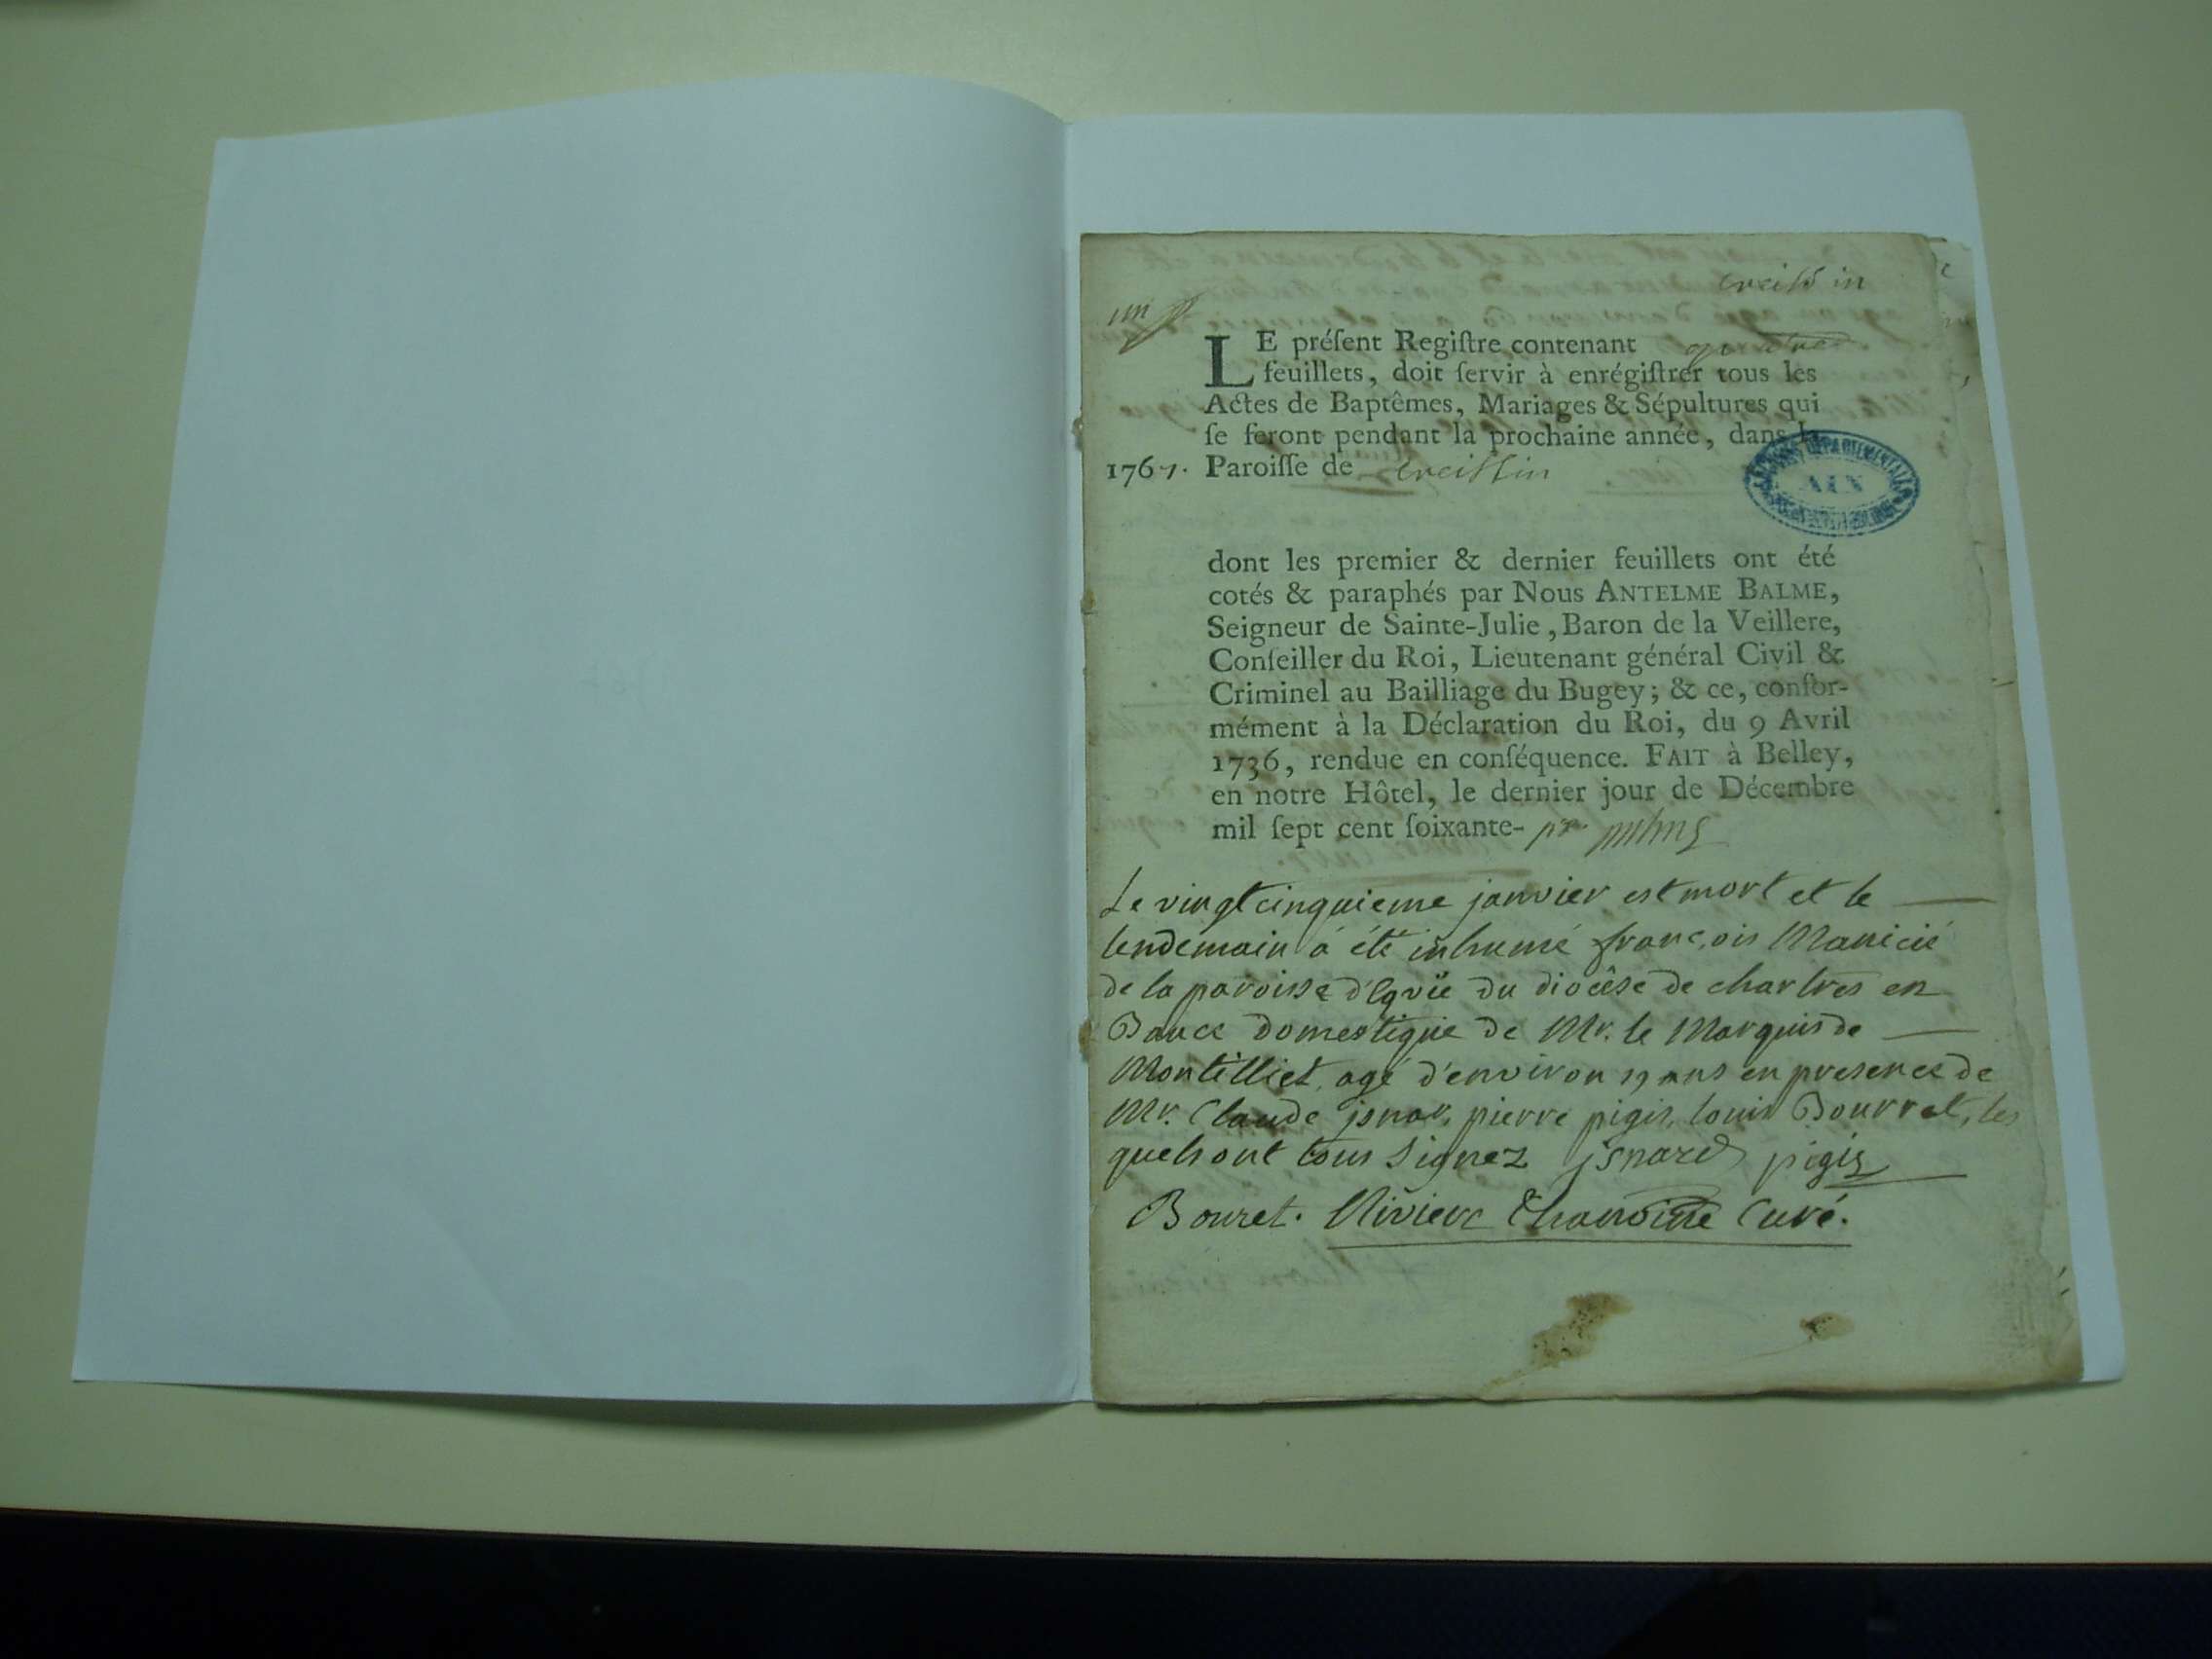 creissin
un
LE préſent Regiſtre contenant quatre
feuillets, doit ſervir à enrégiſtrer tous les
Actes de Baptêmes, Mariages & Sépultures qui
ſe feront pendant la prochaine année, dans la
1767. Paroiſſe de creissin
ARCHIVES DÉPARTEMENTALES
AIN
dont les premier & dernier feuillets ont été
cotés & paraphés par Nous ANTELME BALME,
Seigneur de Sainte-Julie, Baron de la Veillere,
Conſeiller du Roi, Lieutenant général Civil &
Criminel au Bailliage du Bugey; & ce, confor-
mément à la Déclaration du Roi, du 9 Avril
1736, rendue en conſéquence. FAIT à Belley,
en notre Hôtel, le dernier jour de Décembre
mil ſept cent ſoixante-
Le vingt cinquieme janvier est mort et le
lendemain a été inhumé françois Manicié
de la paroisse du diocèse de chartres en
Bauce domestique de Mr. le Marquis de
Montilliet, agé d'environ 19 ans en presence de
Mr. Claude jsnar, pierre pigis, louis Bourret, les
quels ont tous signez jsnard pigis
Bouret. Riviere Chanoine Curé.